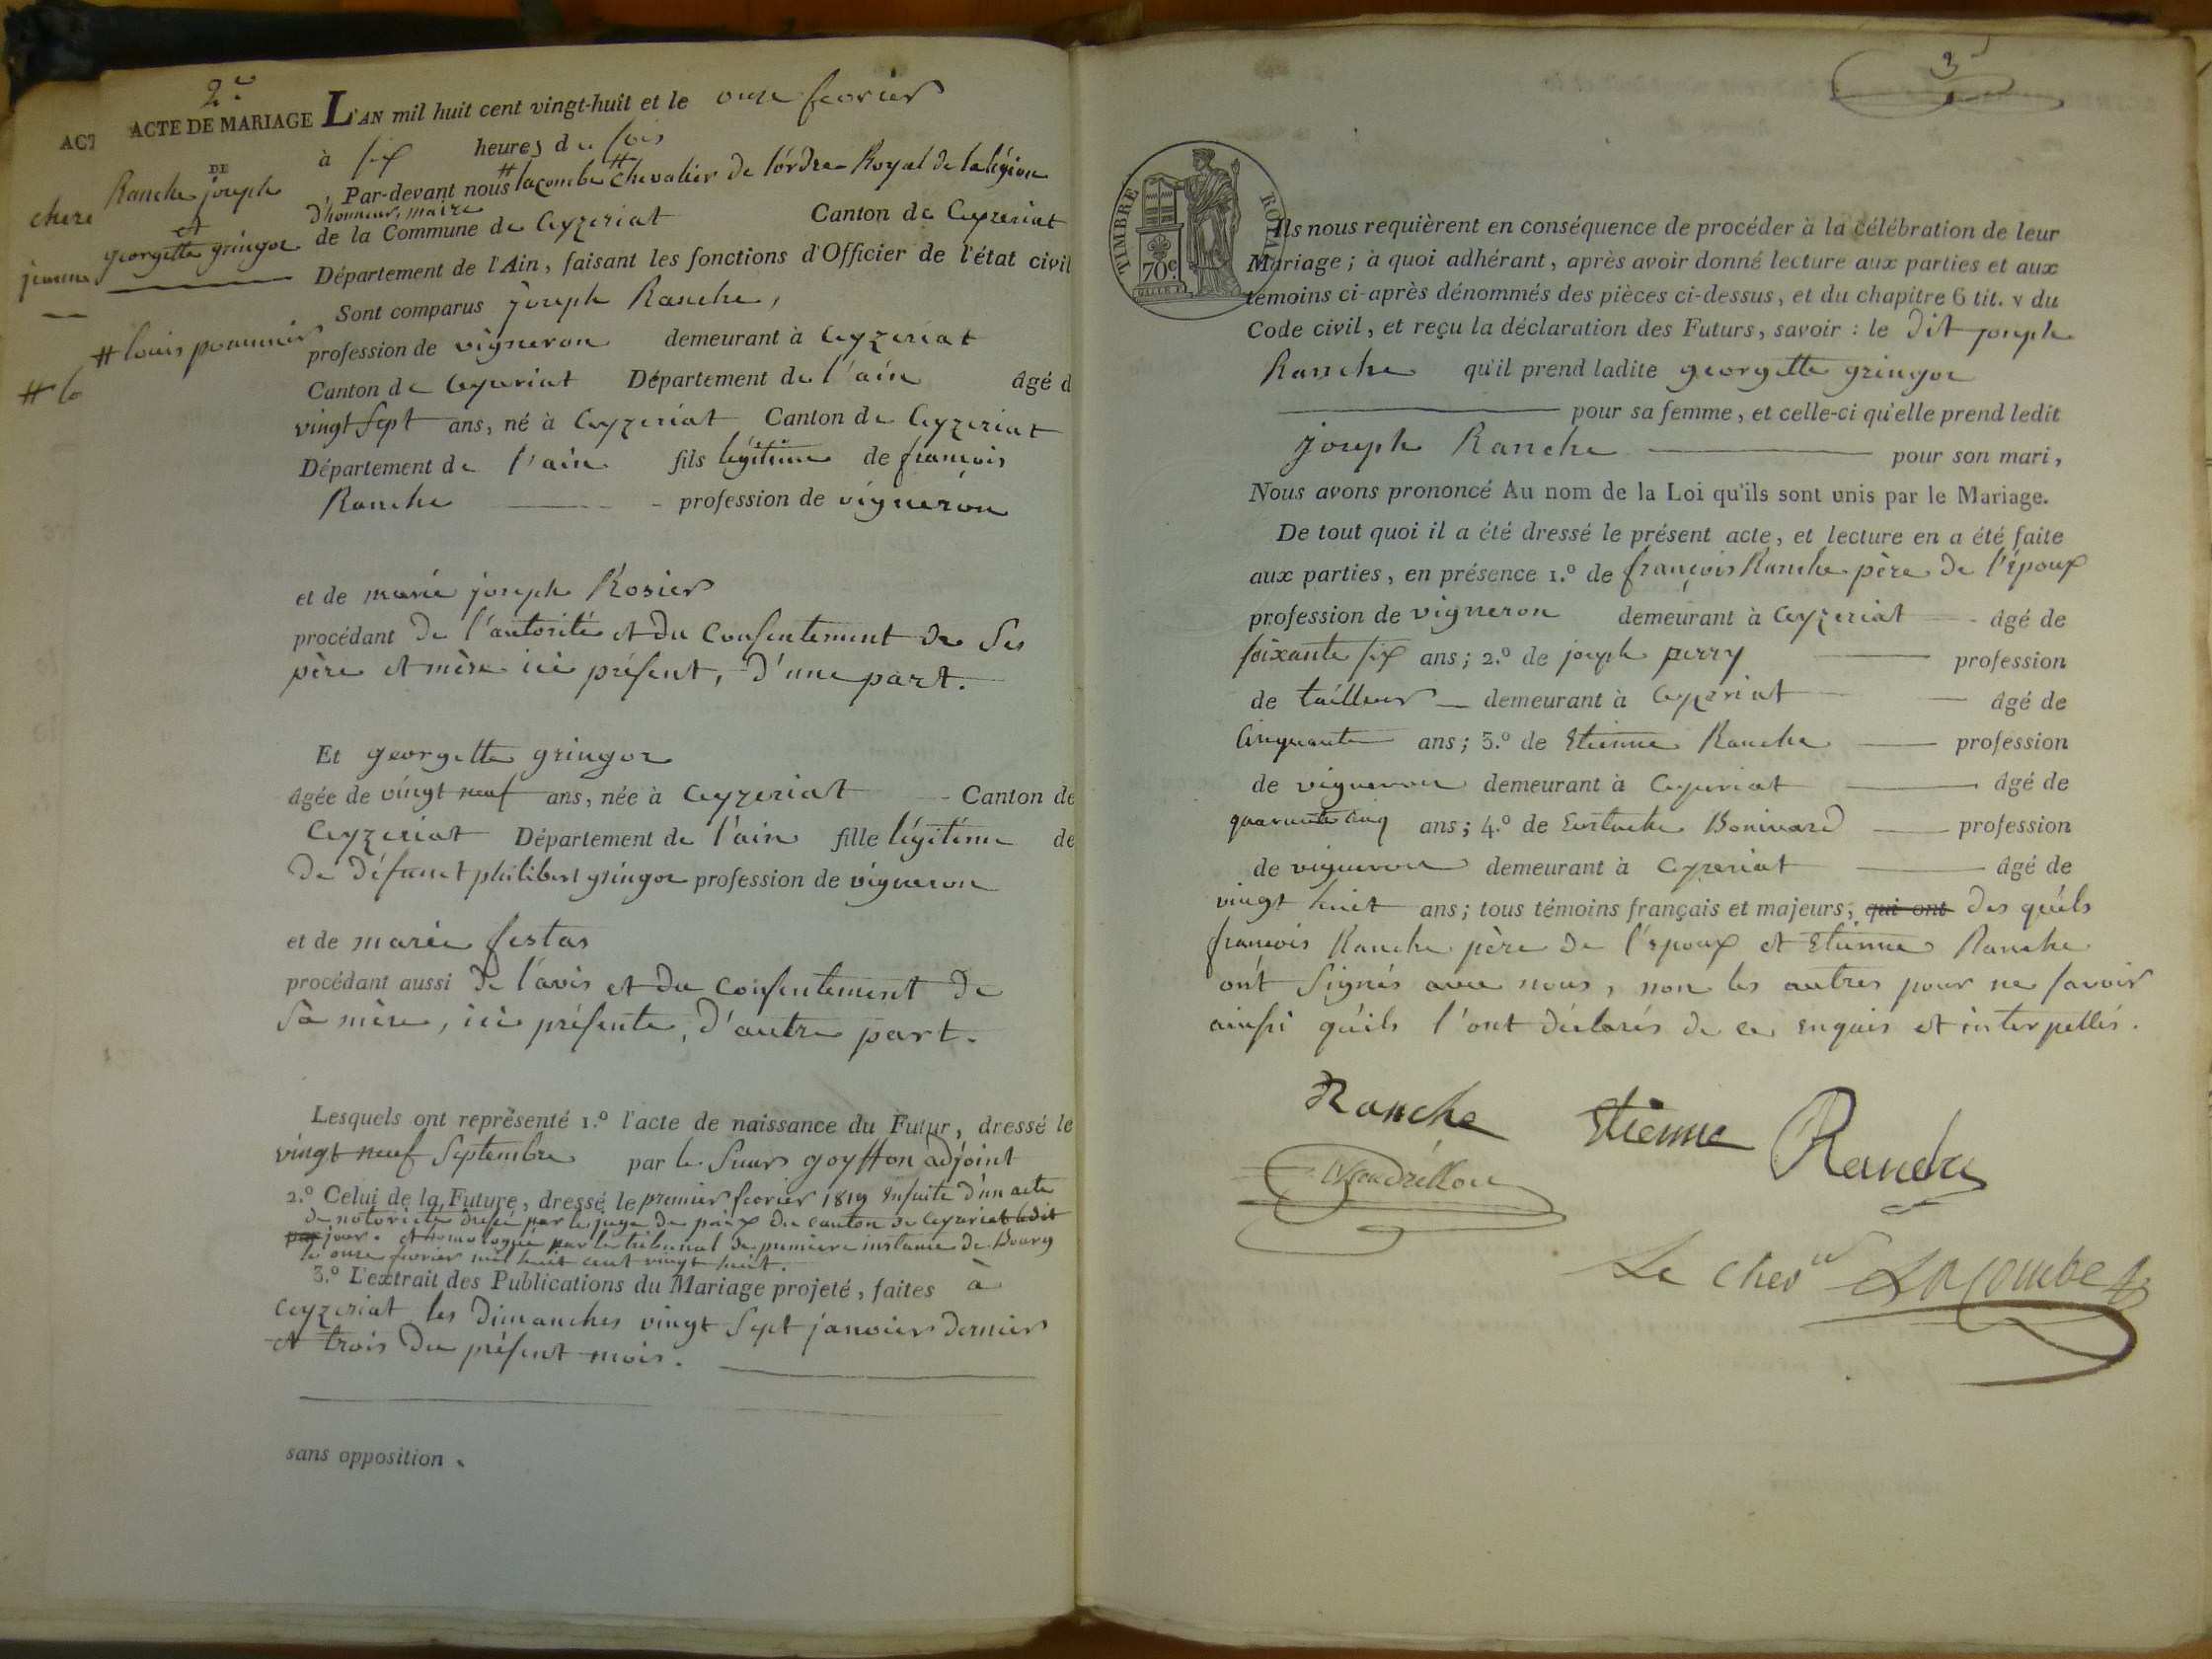 2.e
ACTE DE MARIAGE L'AN mil huit cent vingt-huit et le onze fevrier
DE
Ranche joseph
et
georgette gringoz
# louis pommier
ACT
chere
jeanne
# lo
à six heures du soir
, Par-devant nous # lacombe # Chevalier de l'ordre Royal de la légion
d'honneur, maire
de la Commune de Ceyzeriat Canton de Ceyzeriat
Département de l'Ain, faisant les fonctions d'Officier de l'état civil
Sont comparus joseph Ranche,
profession de vigneron demeurant à Ceyzeriat
Canton de Ceyzeriat Département de l'ain âgé d
vingt sept ans, né à Ceyzeriat Canton de Ceyzeriat
Département de l'ain fils légitime de françois
Ranche profession de vigneron
et de marie joseph Rosier
procédant de l'autorité et du Consentement de Ses
père et mère ici présent, d'une part.
Et georgette gringoz
âgée de vingt neuf ans, née à Ceyzeriat Canton de
Ceyzeriat Département de l'ain fille légitime de
de défunct philibert gringoz profession de vigneron
et de marie festas
procédant aussi de l'avis et du consentement de
Sa mère, ici présente, d'autre part.
Lesquels ont représenté 1.º l'acte de naissance du Futur, dressé le
vingt neuf Septembre par le Sieur goyffon adjoint
2.º Celui de la Future, dressé le premier fevrier 1819 Ensuite d'un acte
de notorieté dressé par le juge de paix du canton de Ceyzeriat ledit
jour. et homologué par le tribunal de premiere instance de Bourg
le onze fevrier mil huit cent vingt huit.
3.º L'extrait des Publications du Mariage projeté, faites à
Ceyzeriat les Dimanches vingt Sept janvier dernier
et trois du présent mois.
sans opposition.
3
TIMBRE ROYAL
70c
Ils nous requièrent en conséquence de procéder à la célébration de leur
Mariage; à quoi adhérant, après avoir donné lecture aux parties et aux
témoins ci-après dénommés des pièces ci-dessus, et du chapitre 6 tit. v du
Code civil, et reçu la déclaration des Futurs, savoir : le dit joseph
Ranche qu'il prend ladite georgette gringoz
pour sa femme, et celle-ci qu'elle prend ledit
joseph Ranche pour son mari,
Nous avons prononcé Au nom de la Loi qu'ils sont unis par le Mariage.
De tout quoi il a été dressé le présent acte, et lecture en a été faite
aux parties, en présence 1.º de françois Ranche père de l'époux
profession de vigneron demeurant à Ceyzeriat âgé de
soixante six ans; 2.º de joseph perry profession
de tailleur demeurant à Ceyzeriat âgé de
Cinquante ans; 3.º de Etienne Ranche profession
de vigneron demeurant à Ceyzeriat âgé de
quarante cinq ans; 4.º de Eustache Bonivard profession
de vigneron demeurant à Ceyzeriat âgé de
vingt huit ans; tous témoins français et majeurs; qui ont des quéls
françois Ranche père de l'époux et Etienne Ranche
ont Signés avec nous, non les autres pour ne savoir
ainsi qu'ils l'ont déclarés de ce enquis et interpellés.
Ranche Etienne Ranche
Le chever Lacombe